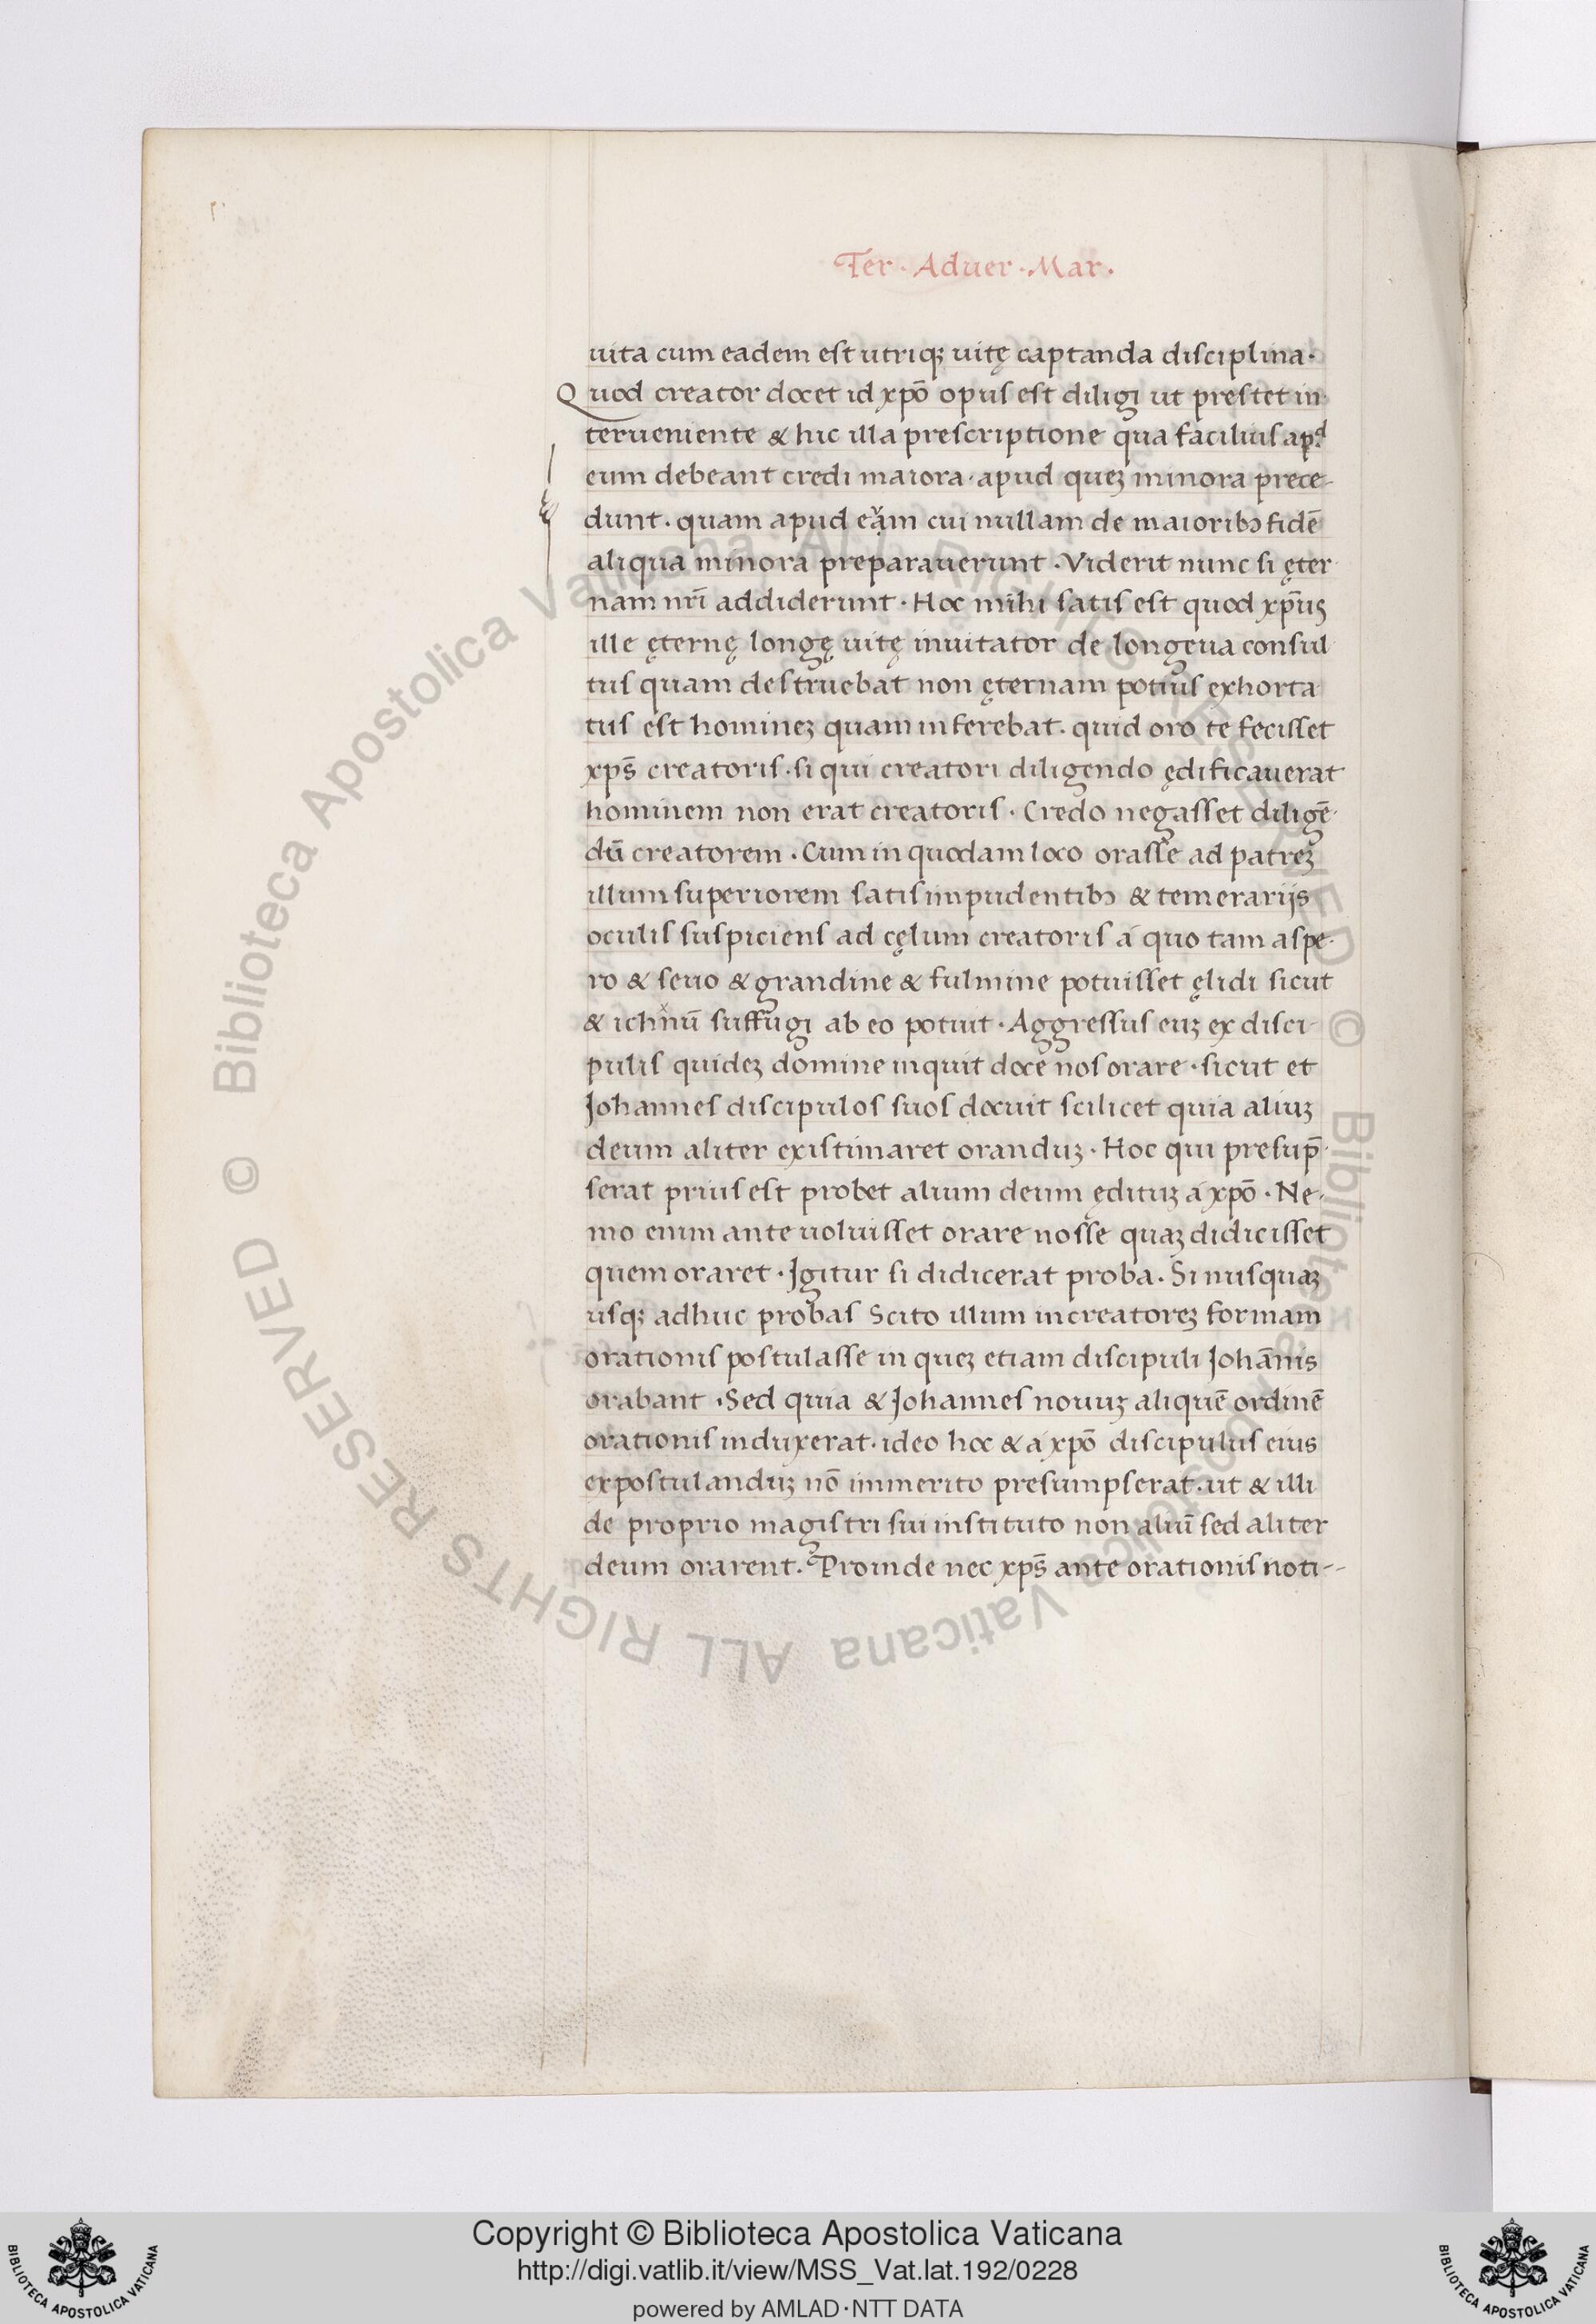 Ter · Aduer · Mar ·
uita cum eadem est utriqȝ uitę captanda disciplina ·
Quod creator docet id xpō opus est diligi ut prestet in-
terueniente & hic illa prescriptione qua facilius apd
eum debeant credi maiora · apud queȝ minora prece-
dunt · quam apud eam cui nullam de maioribꝫ fidē
aliqua minora preparauerunt · Viderit nunc si ęter
nam nrī addiderunt · Hoc mihi satis est quod xp̄us
ille ęternę longę uitę inuitator de longeua consul
tus quam destruebat non ęternam potius exhorta
tus est homineȝ quam inferebat · quid oro te fecisset
xps̄ creatoris · si qui creatori diligendo ędificauerat
hominem non erat creatoris · Credo negasset diligē-
dū creatorem · Cum in quodam loco orasse ad patreȝ
illum superiorem satis impudentibꝫ & temerarijs
oculis suspiciens ad cęlum creatoris á quo tam aspe-
ro & seuo & grandine & fulmine potuisset ęlidi sicut
& ichnū suffugi ab eo potuit · Aggressus euȝ ex disci-
pulis quideȝ domine inquit doce nos orare · sicut et
Johannes discipulos suos docuit scilicet quia aliuȝ
deum aliter existimaret oranduȝ · Hoc qui presup̄-
serat prius est probet alium deum ędituȝ á xpō · Ne-
mo enim ante uoluisset orare nosse quaȝ didicisset
quem oraret · Igitur si didicerat proba · Si nusquaȝ
usqȝ adhuc probas Scito illum in creatoreȝ formam
orationis postulasse in queȝ etiam discipuli Johānis
orabant · Sed quia & Johannes nouuȝ aliquē ordinē
orationis induxerat · ideo hoc & á xpō discipulus eius
expostulanduȝ nō immerito presumpserat · ut & illi
de proprio magistri sui instituto non aliū sed aliter
deum orarent · Proinde nec xps̄ ante orationis noti--
© Biblioteca Apostolica Vaticana ALL RIGHTS RESERVED © Biblioteca Apostolica Vaticana ALL RIGHTS RESERVED
Copyright © Biblioteca Apostolica Vaticana
http://digi.vatlib.it/view/MSS_Vat.lat.192/0228
powered by AMLAD·NTT DATA
BIBLIOTECA APOSTOLICA VATICANA
BIBLIOTECA APOSTOLICA VATICANA